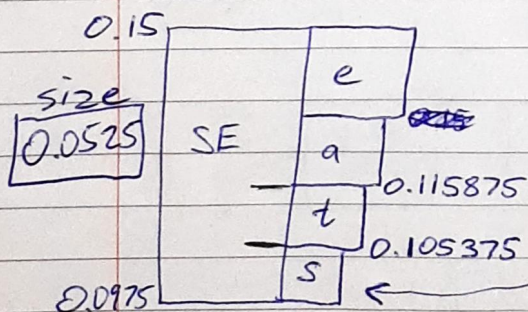 0.15
e
size
0.0525
SE
a
0.115875
t
0.105375
s
0.0975